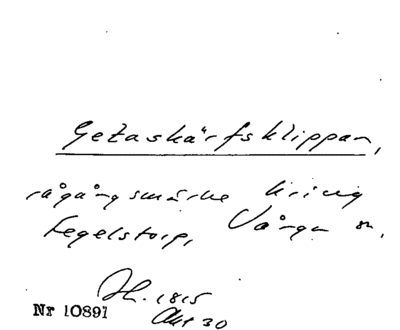 Getaskärfsklippan,
rågångsmärke kring
Tegelstorp, Vånga sn.
Nr 10891
1815
Akt 30